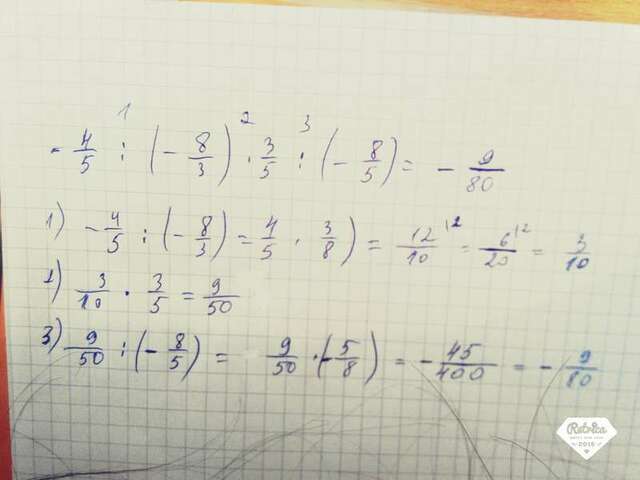 1 2 3
- 4/5 : (- 8/3) · 3/5 : (- 8/5) = - 9/80
1) - 4/5 : (- 8/3) = 4/5 · 3/8) = 12/10 |2 = 6/20 |2 = 3/10
2) 3/10 · 3/5 = 9/50
3) 9/50 : (- 8/5) = 9/50 · (- 5/8) = - 45/400 = - 9/80
Retrica
2016